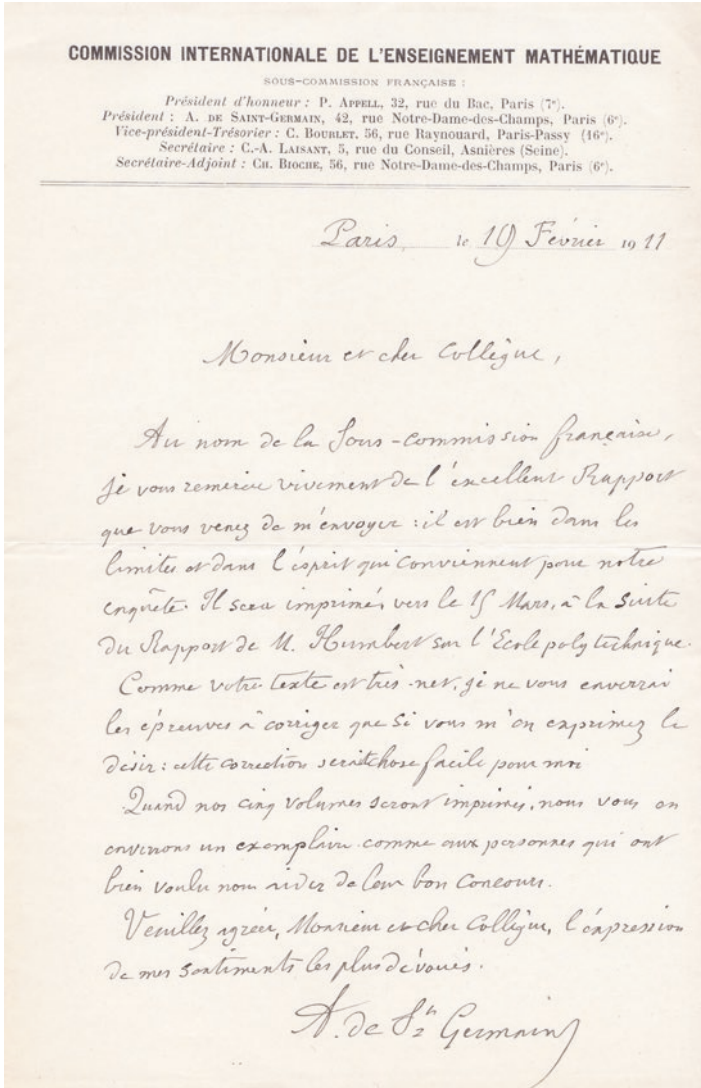 COMMISSION INTERNATIONALE DE L'ENSEIGNEMENT MATHÉMATIQUE
SOUS-COMMISSION FRANÇAISE :
Président d'honneur : P. APPELL, 32, rue du Bac, Paris (7e).
Président : A. DE SAINT-GERMAIN, 42, rue Notre-Dame-des-Champs, Paris (6e).
Vice-président-Trésorier : C. BOURLET, 56, rue Raynouard, Paris-Passy (16e).
Secrétaire : C.-A. LAISANT, 5, rue du Conseil, Asnières (Seine).
Secrétaire-Adjoint : CH. BIOCHE, 56, rue Notre-Dame-des-Champs, Paris (6e).
Paris, le 19 Février 1911
Monsieur et cher Collègue,
Au nom de la Sous-commission française,
je vous remercie vivement de l'excellent Rapport
que vous venez de m'envoyer : il est bien dans les
limites et dans l'esprit qui conviennent pour notre
enquête. Il sera imprimé, vers le 15 Mars, à la suite
du Rapport de M. Humbert sur l'Ecole polytechnique.
Comme votre texte est très net, je ne vous enverrai
les épreuves à corriger que si vous m'en exprimez le
désir : cette correction serait chose facile pour moi
Quand nos cinq volumes seront imprimés, nous vous en
enverrons un exemplaire comme aux personnes qui ont
bien voulu nous aider de leur bon concours.
Veuillez agréer, Monsieur et cher Collègue, l'expression
de mes sentiments les plus dévoués.
A. de St Germain